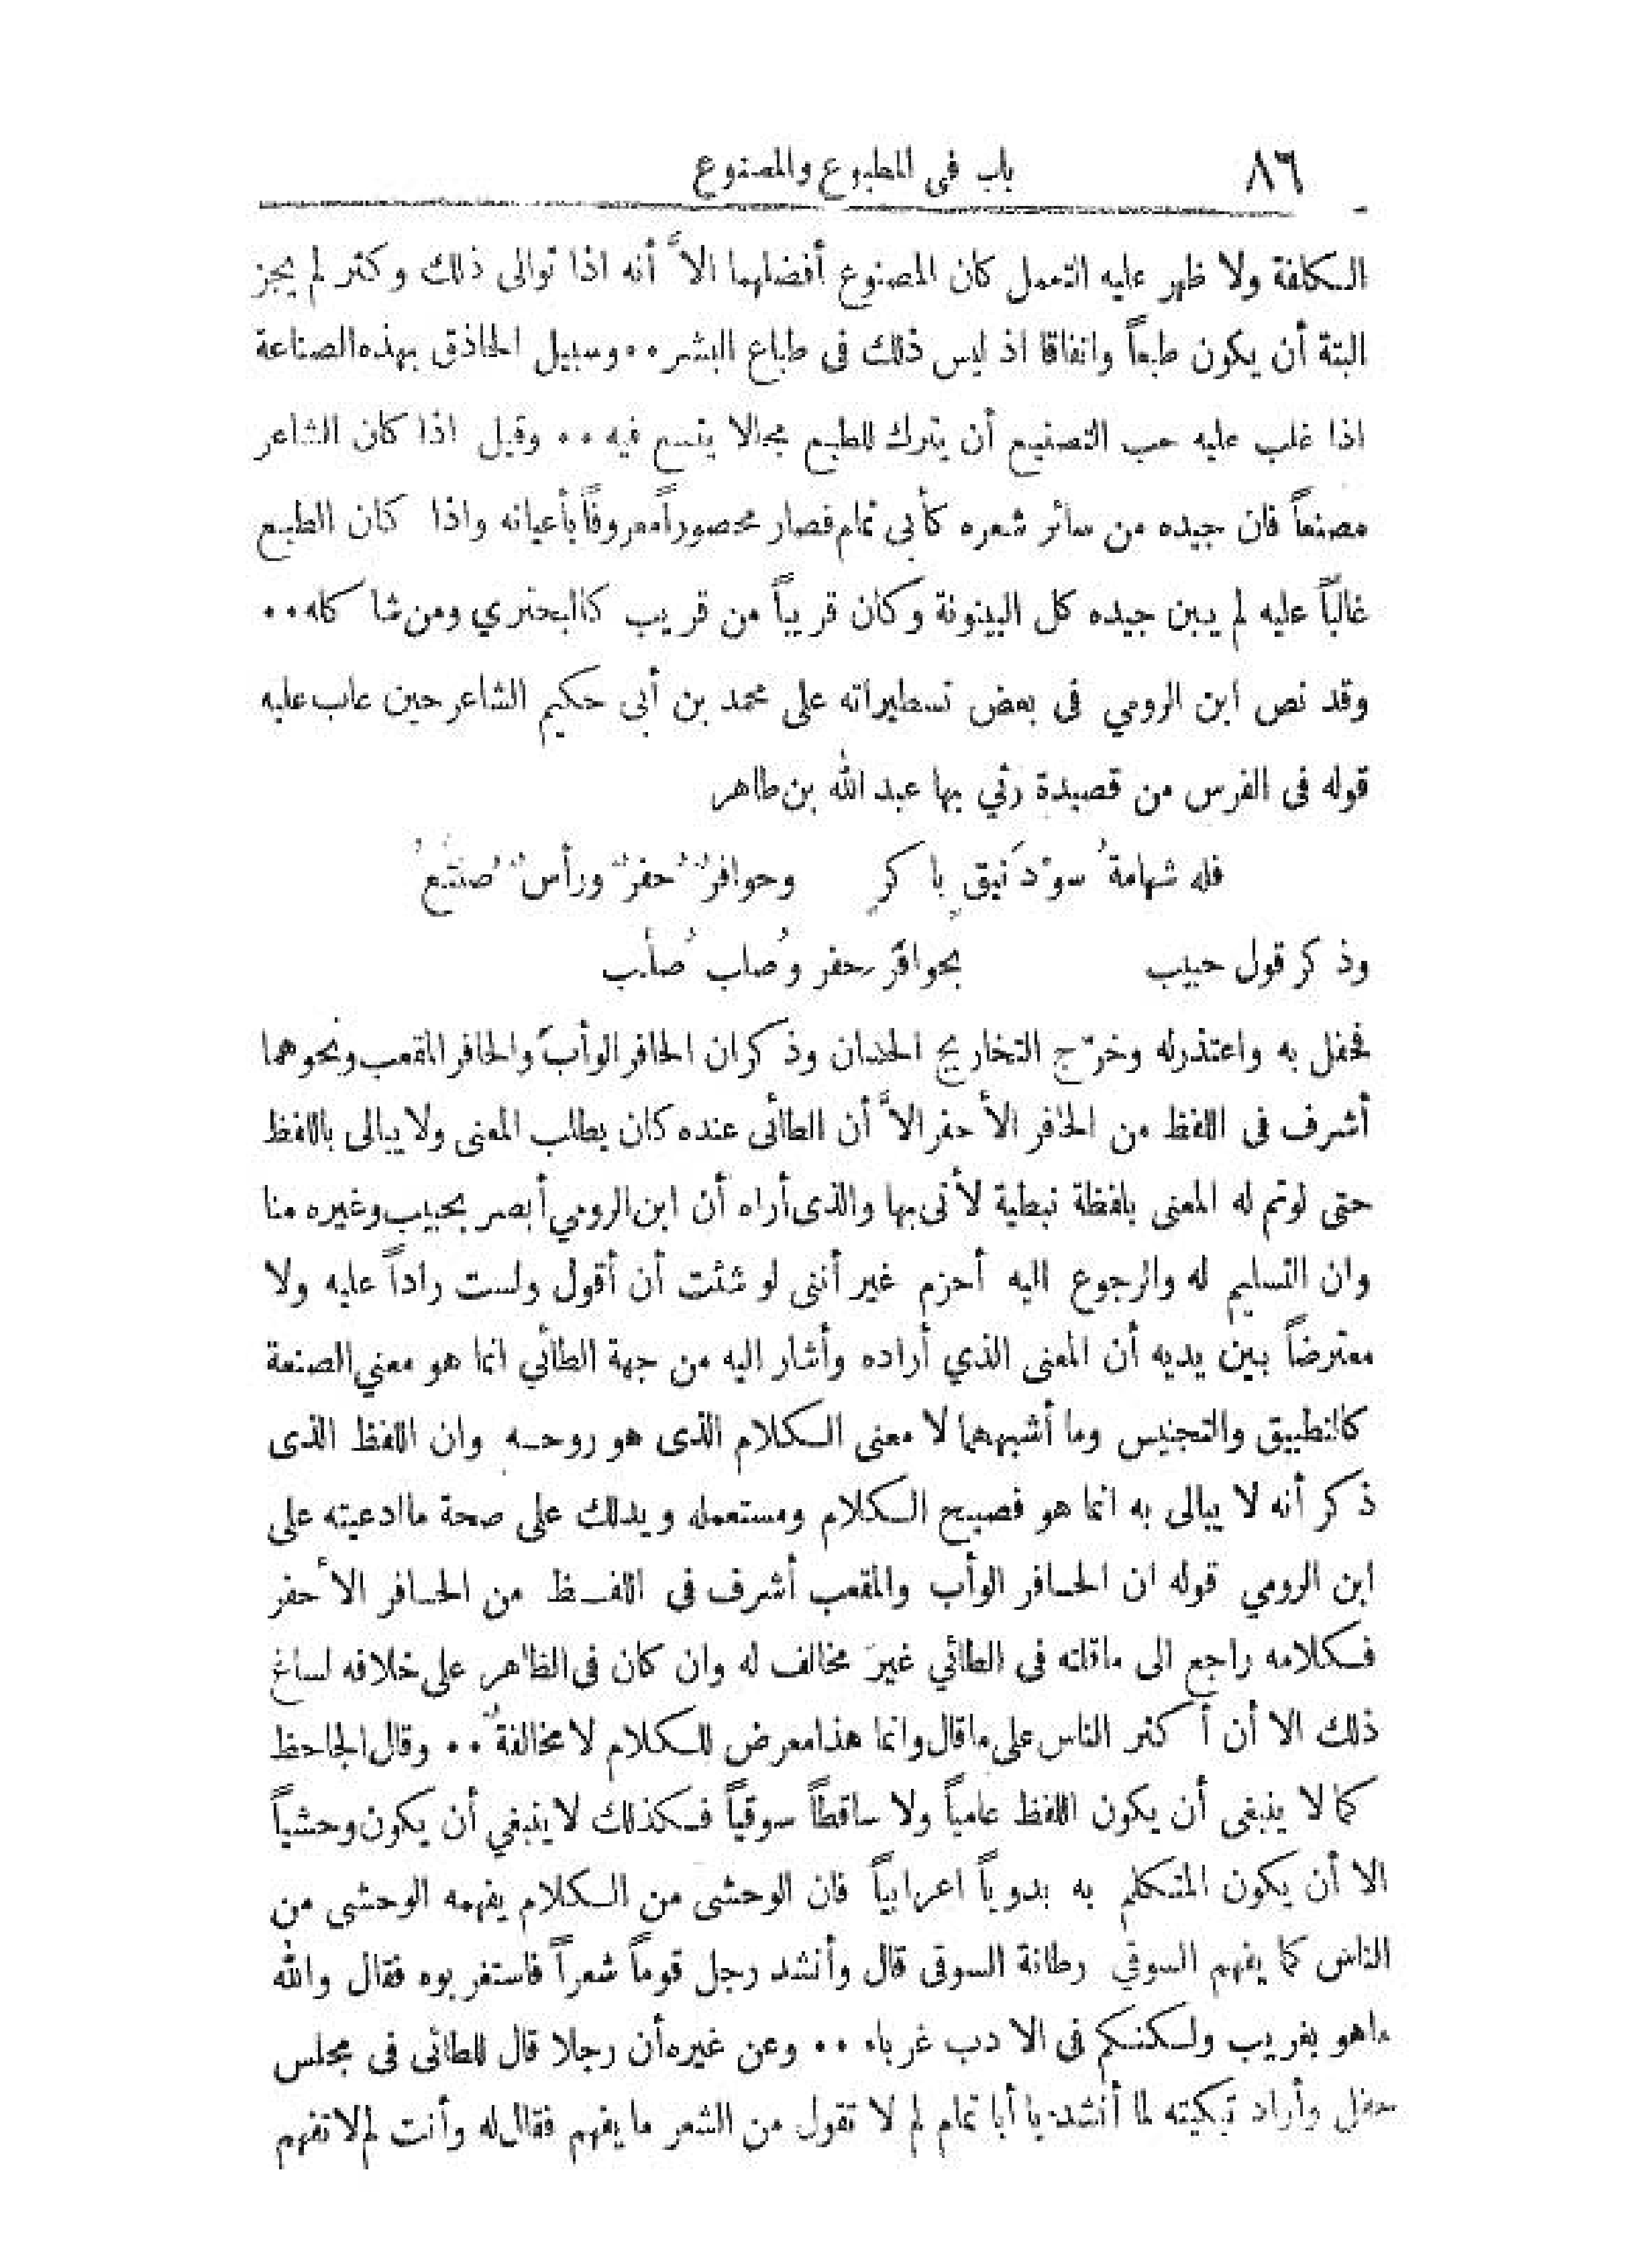 ٨٦ باب فى المطبوع والمصنوع
الكلفة ولا ظهر عليه التعمل كان المصنوع أفضلهما الاَّ أنه اذا توالى ذلك وكثر لم يجز
البتة أن يكون طبعاً واتفاقا اذ ليس ذلك فى طباع البشر ٠٠ وسبيل الحاذق بهذه الصناعة
اذا غلب عليه حب التصنيع أن يترك للطبع مجالا يتسع فيه ٠٠ وقيل اذا كان الشاعر
مصنعاً فان جيده من سائر شعره كأبى تمام فصار محصوراً معروفاً بأعيانه واذا كان الطبع
غالباً عليه لم يبن جيده كل البينونة وكان قريباً من قريب كالبحتري ومن شاكله ٠٠
وقد نص ابن الرومي فى بعض تسطيراته على محمد بن أبى حكيم الشاعر حين عاب عليه
قوله فى الفرس من قصيدة رثي بها عبد الله بن طاهر
فله شهامةُ سوْدَنيقٍ باكرٍ وحوافرٌ حفرٌ ورأسٌ صنتَعُ
وذكر قول حبيب بحوافرٍ حفر وصُلب صُلَّب
فحفل به واعتذرله وخرّج التخاريج الحسان وذكر ان الحافر الوأبَ والحافر المقعب ونحوهما
أشرف فى اللفظ من الحافر الأحفر الاَّ أن الطائى عنده كان يطلب المعنى ولا يبالى باللفظ
حتى لوتم له المعنى بلفظة نبطية لأتى بها والذى أراه أن ابن الرومي أبصر بحبيب وغيره منا
وان التسليم له والرجوع اليه أحزم غير أننى لو شئت أن أقول ولست راداً عليه ولا
معترضاً بين يديه أن المعنى الذي أراده وأشار اليه من جهة الطائي انما هو معني الصنعة
كالتطبيق والتجنيس وما أشبههما لا معنى الكلام الذى هو روحه وان اللفظ الذى
ذكر أنه لا يبالى به انما هو فصيح الكلام ومستعمله ويدلك على صحة ماادعيته على
ابن الرومي قوله ان الحافر الوأب والمقعب أشرف فى اللفظ من الحافر الأحفر
فكلامه راجع الى ماقلته فى الطائي غيرَ مخالف له وان كان فى الظاهر على خلافه لساغ
ذلك الا أن أكثر الناس على ماقال وانما هذا معرض للكلام لا مخالفةٌ ٠٠ وقال الجاحظ
كما لا ينبغى أن يكون اللفظ عامياً ولا ساقطاً سوقياً فكذلك لا ينبغي أن يكون وحشياً
الا أن يكون المتكلم به بدوياً اعرابياً فان الوحشى من الكلام يفهمه الوحشى من
الناس كما يفهم السوقي رطانة السوقى قال وأنشد رجل قوماً شعراً فاستغربوه فقال والله
ماهو بغريب ولكنكم فى الادب غرباء ٠٠ وعن غيره أن رجلا قال للطائى فى مجلس
حفل وأراد تبكيته لما أنشد يا أبا تمام لم لا تقول من الشعر ما يفهم فقال له وأنت لم لا تفهم